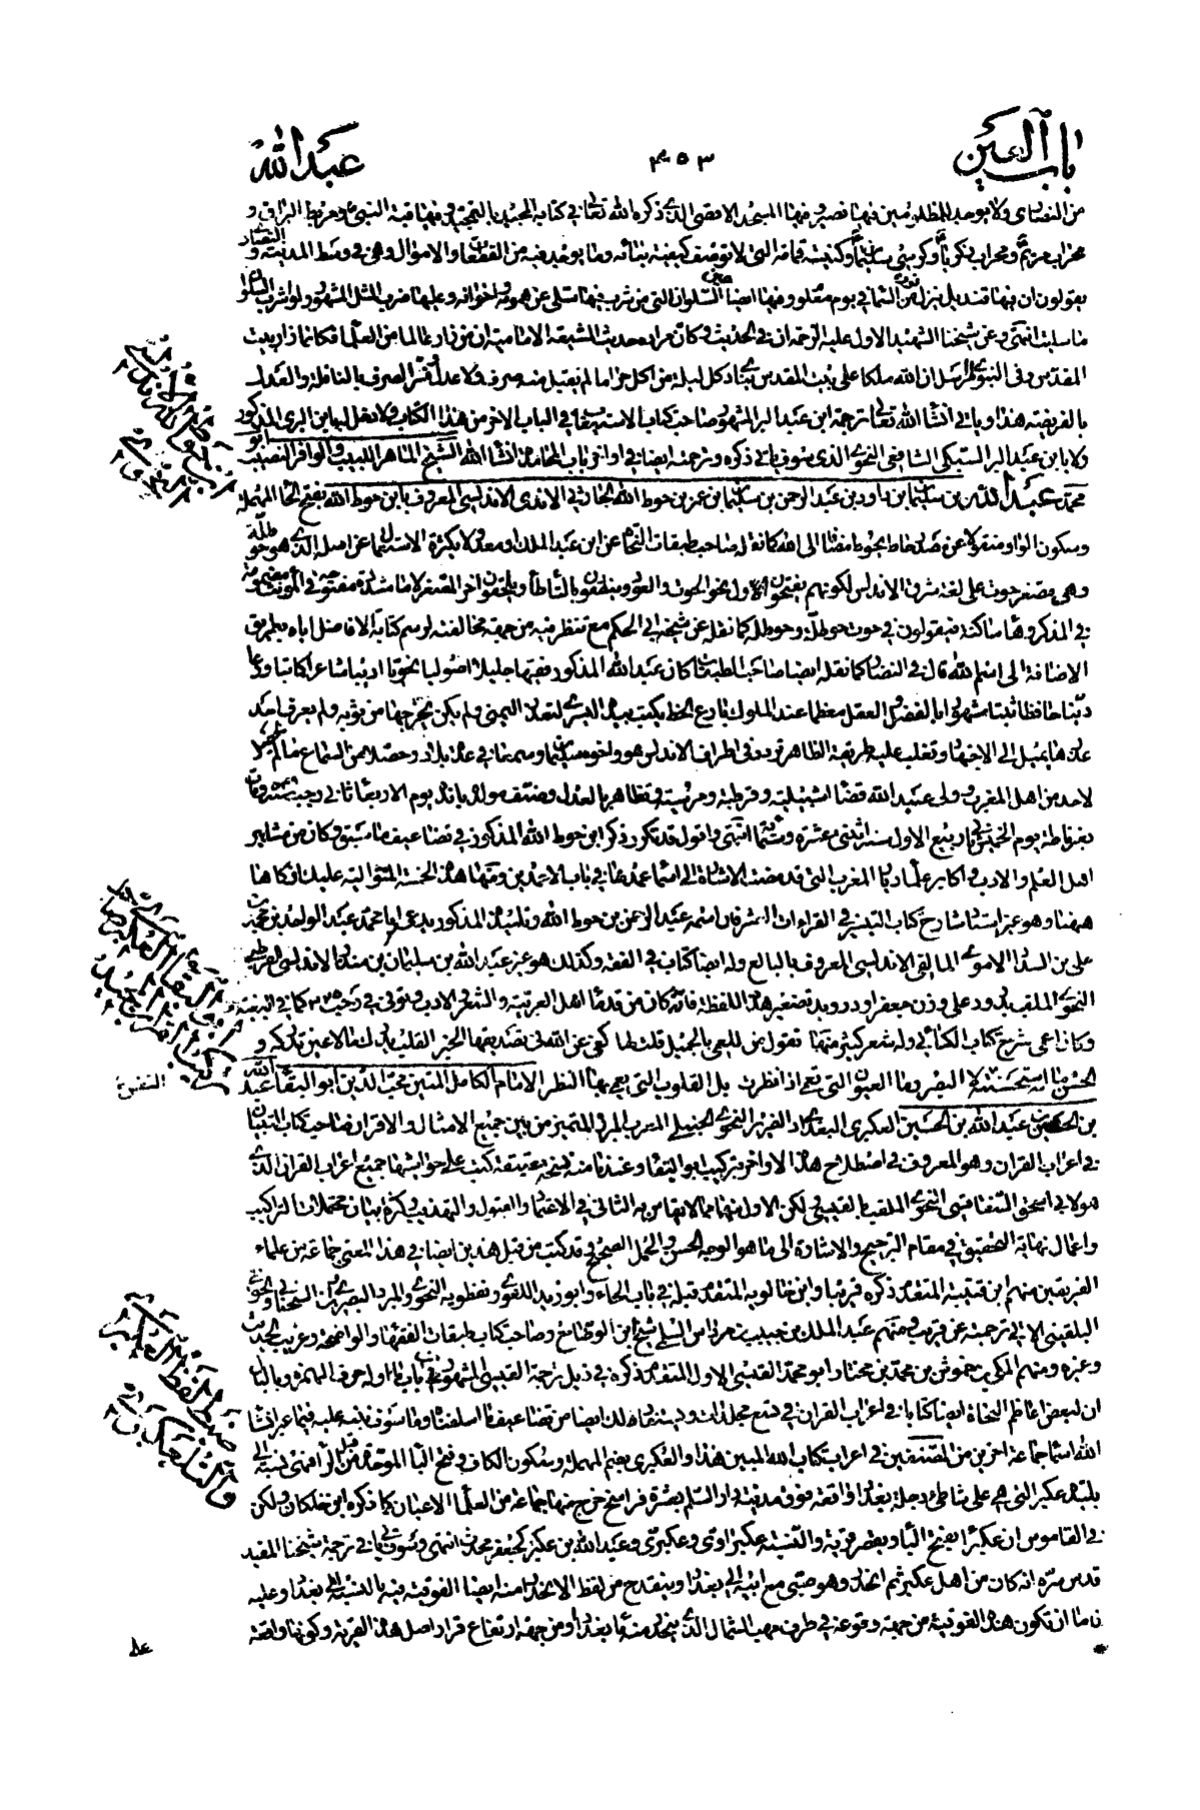 باب العين
٤٥٣
عبد الله
من النصارى ولا يوجد فيها قصير وفيها المسجد الاقصى الذي ذكره الله تعالى في كتابه المجيد وفيها قبة النبي ومربط البراق و
محراب مريم ومحراب زكريا وكرسي سليمان وكنيسة قمامة التي لا توصف كيفية بنائه وما يوجد فيه من والاموال وهي في وسط المدينة والنصارى
يقولون ان فيها قنديل ينزل من السماء في يوم معلوم وفيها ايضا عين السلوان التي من شرب فيها سلى عن همومه واخوانه وعليها ضرب المثل المشهور ولو اشرب السلوان
ما سليت انتهى وعن شيخنا الشهيد الاول عليه الرحمة ان في الحديث وكان مراده حديث الشيعة الامامية ان من زار عالما من العلماء فكانما زار بيت
المقدس وفي النبوي المرسل ان لله ملكا على بيت المقدس ينادي كل ليلة من اكل حراما لم يقبل منه صرف ولا عدل وفسر الصرف بالنافلة والعدل
بالفريضة هذا وياتي انشاء الله تعالى ترجمة ابن عبد البر المشهور صاحب كتاب الاستيعاب في الباب الاخر من هذا الكتاب ولا تغفل ابن البري المذكور
ولا بابن عبد البر السبكي الشافعي النحوي الذي سوف ياتي ذكره وترجمته ايضا في اواخر باب المحامدة انشاء الله الشيخ الماهر اللبيب والوافر النصيب ابو
محمد عبد الله بن سليمان بن داود بن عبد الرحمن بن سليمان بن عمر بن حوط الله الحارثي الاندي الاندلسي المعروف بابن حوط الله بفتح الحاء المهملة
وسكون الواو منقولا عن مصدر حاط يحوط مضافا الى الله كما نقله صاحب طبقات النحاة عن ابن عبد الملك ومعدولا بكثرة الاستعمال عن اصله الذي هو حوطلة
وهي مصغر حوت على لغة شرق الاندلس لكونهم يفتحون الاول نحو الحوت والعود وينطقون بالتاء طاء ويلحقون اخر المصغر لاما مشددة مفتوحة في المؤنث مضمومة
في المذكر وهاء ساكنة فيقولون في حوت حوطلة وحوطله كما نقله عن شيخه في الحكم مع تنظر فيه من جهة مخالفته لرسم كتابة الافاضل اياه بطريق
الاضافة الى اسم الله قال في النضار كما نقله ايضا صاحب الطبقات كان عبد الله المذكور فقيها جليلا اصوليا نحويا اديبا شاعرا كاتبا ورعا
دينا حافظا ثبتا مشهورا بالفضل والعقل معظما عند الملوك بارع الخط يكتب بيده اليسرى لتعذر اليمنى ولم يكن يخرجها من ثوبه ولم يعرف احد
عذرها يميل الى الاجتهاد وتغلب عليه طريقة الظاهر تردد في اطراف الاندلس هو واخوه سليمان وسمعا في عدة بلاد وحصلا من السماع عاما لم يحصل
لاحد من اهل المغرب ولى عبد الله قضاء اشبيلية وقرطبة ومرسية وتظاهر بالعدل وصنف مولده باندة يوم الاربعاء ثاني رجب سنة ومات
بغرناطة يوم الخميس ثاني ربيع الاول سنة اثنتي عشرة وستمائة انتهى واقول قد تكرر ذكر ابن حوط الله المذكور في تضاعيف ما سبق وكان من مشاهير
اهل العلم والادب واكابر علماء ديار المغرب التي قد مضت الاشارة الى اسماء عمدها في باب الاحمدين ومنها هذه الخمسة المتوالية عليك ذكرها
هيهنا وهو غير استاد شارح كتاب التيسير في القراءات العشر فان اسمه عبد الرحمن بن حوط الله وتلميذه المذكور يدعى ابا محمد عبد الواحد بن محمد بن
علي بن السداد الاموي المالقي الاندلسي المعروف بالبايع وله ايضا كتاب في الفقه وكذلك هو غير عبد الله بن سليمان بن منذر الاندلسي القرطبي
النحوي الملقب بدرود على وزن جعفر او دريود بتصغير هذه اللفظة فانه كان من قدماء اهل العربية والشعر والادب وتوفي في رجب ٣٢٥ كما في البغية
وكان اعمى شرح كتاب الكسائي وله شعر كثير منها تقول من للعمى بالحسن قلت لها كفى عن الله في تصديقه الخبر القلب يدرك ما لا عين تدركه و
الحسن ما استحسنته لا البصر وما العيون التي تعمى اذا نظرت بل القلوب التي يعمى بها النظر الامام الكامل المتين محب الدين ابو البقاء عبد الله
بن الحسين بن عبد الله بن الحسين العكبري البغدادي الضرير النحوي الحنبلي المعرب المبرز المتميز من بين جميع الامثال والاقران صاحب كتاب التبيان
في اعراب القران وهو المعروف في اصطلاح هذا الاواخر بتركيب ابو البقاء وعندنا منه نسخة عتيقة كتب على حواشيها جميع اعراب القران الذي
هو لابي اسحق السفاقسي النحوي الملقب بالقيسي لكن الاول منهما مما لا يقاس به الثاني في الاعتماد والقبول والتهذيب وكثرة بيان محتملات التراكيب
واعمال نهاية التحقيق في مقام الترجيح والاشارة الى ما هو الوجه الحسن والحمل الصحيح وقد كتب من قبل هذين ايضا في هذا المعنى جماعة من علماء
الفريقين منهم ابن قتيبة المتقدم ذكره قريبا وابن خالويه المتقدم قبله في باب الحاء وابو زيد اللغوي ونفطويه النحوي والمبرد البصري ثم السخاوي والحوفي
البلقيني الاتي ترجمته عن قريب ومنهم عبد الملك بن حبيب بن مرداس السلمي شيخ ابن الوضاح وصاحب كتاب طبقات الفقهاء والواضحة وغريب الحديث
وغيره ومنهم المكي بن حموش بن محمد بن مختار ابو محمد القيسي الاول المتقدم ذكره في ذيل ترجمة القيسي المشهور في باب ما اوله حرف الهمزة وبالبال
ان لبعض اعاظم النحاة ايضا كتابا في اعراب القران في تسع مجلدات ويستفاد لك ايضا من تضاعيف ما اسلفناه وما سوف ننبه عليه فيما غير انشاء
الله اسماء جماعة اخرين من المصنفين في اعراب كتاب الله المبين هذا والعكبري بضم المهملة وسكون الكاف وفتح الباء الموحدة قبل الراء فهي نسبة الى
بليدة عكبرا التي هي على شاطئ دجلة بغداد واقعة فوق مدينة دار السلم بعشرة فراسخ خرج منها جماعة من العلماء الاعيان كما ذكره ابن خلكان ولكن
في القاموس ان عكبراء بفتح الباء ويقصر قرية والنسبة عكبراوي وعكبري وعبد الله بن عكبر كجعفر محدث انتهى وسوف ياتي في ترجمة شيخنا المفيد
قدس سره انه كان من اهل عكبر ثم انحدر وهو صبي مع ابيه الى بغداد وينقدح من لفظ الانحدار منه ايضا الفوقية فيه بالنسبة الى بغداد وعليه
فاما ان تكون هذه الفوقية من جهة وقوعه في طرف مهب الشمال الذي ينحدر منه ماء بغداد او من جهة ارتفاع قرار اصل هذه القرية وكونها واقعة
على
ابن حوط الله الاندي
النحوي
ابو البقاء العكبري صاحب
تركيب القران المجيد
ضبط لفظ العكبر
والتلعكبري